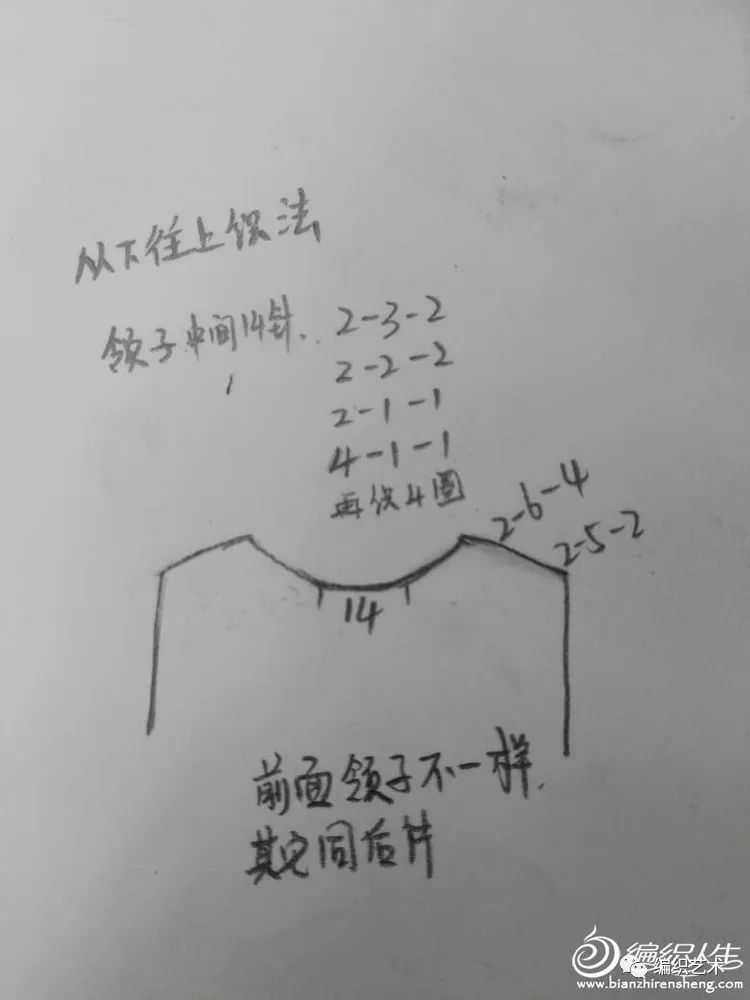 从下往上织法
领子中间14针. 2-3-2
2-2-2
2-1-1
4-1-1
再织4圈
2-6-4
2-5-2
14
前面领子不一样.
其它同后片
编织人生
编织艺术
www.bianzhirensheng.com